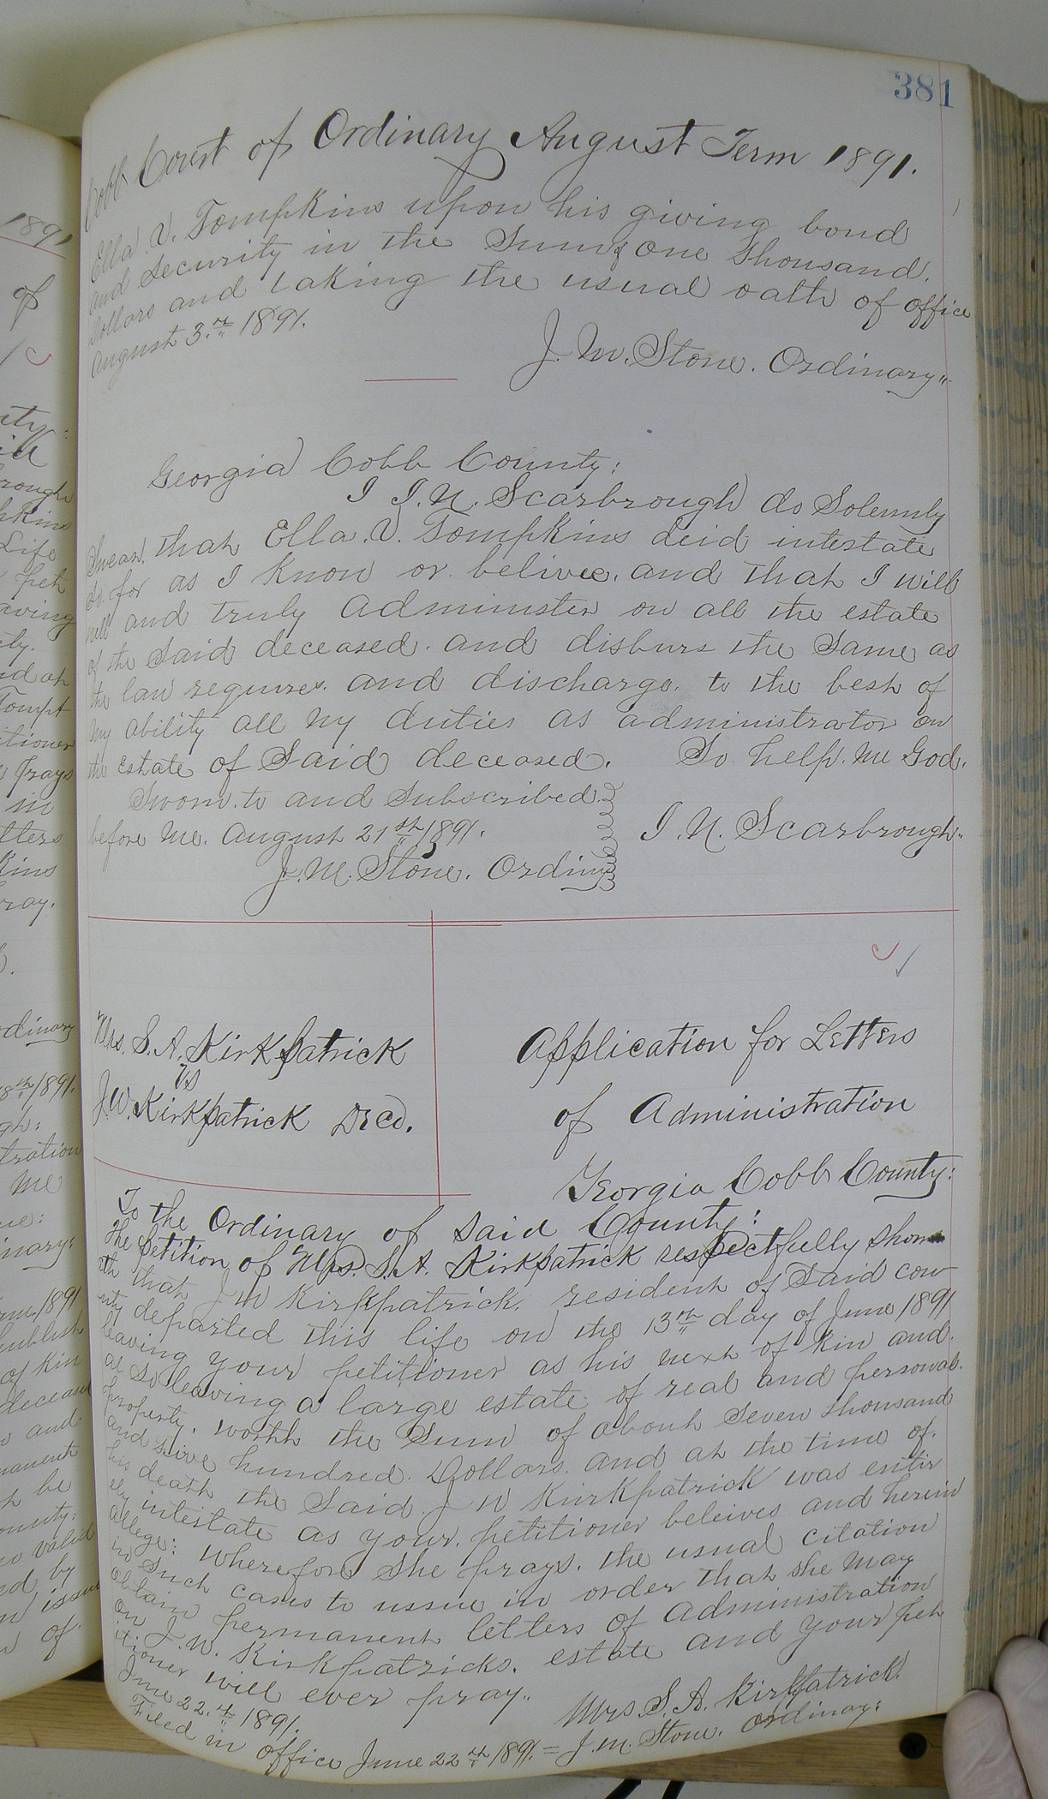 381
Cobb Court of Ordinary August Term 1891.
Ella V. Tompkins upon his giving bond
and security in the Sum of one Thousand.
Dollars and taking the usual oath of office
August 3.rd 1891.
J. M. Stone. Ordinary"
Georgia Cobb County:
I I. N. Scarbrough do Solemnly
Swear, that Ella. V. Tompkins deid intestate
So. for as I know or. belivee. and that I will
well and truly administer on all the estate
of the Said deceased. and disburs the Same as
the law requires. and discharge. to the best of
my ability all my duties as administrator on
the estate of Said deceased. So help. me God.
Sworn. to and Subscribed.
before me. August 21st 1891. I. N. Scarbrough.
J. M. Stone. Ordinary
Mrs. S. A. Kirkpatrick
vs
J. W. Kirkpatrick Decd.
Application for Letters
of Administration
Georgia Cobb County:
To the Ordinary of Said County:
The petition of Mrs. S. A. Kirkpatrick respectfully show
eth that J W Kirkpatrick. resident of Said cou
nty departed this life on the 13th day of June 1891
leaving your petitioner as his next of kin and.
al so leaving a large estate of real and personal.
property. worth the Sum of about Seven thousand
and five hundred. Dollars. and at the time of.
his death the Said. J W Kirkpatrick was entir
ely intestate as your. petitioner beleives and herein
allege: Wherefore She prays. the usual citation
in Such cases to issue in order that she may
obtain permanent letters of administration
on J. W. Kirkpatricks. estate and your pet
itioner will ever pray..
June 22.nd 1891. Mrs. S. A. Kirkpatrick
Filed in office June 22nd 1891. = J. M. Stone. Ordinary:
1891
of